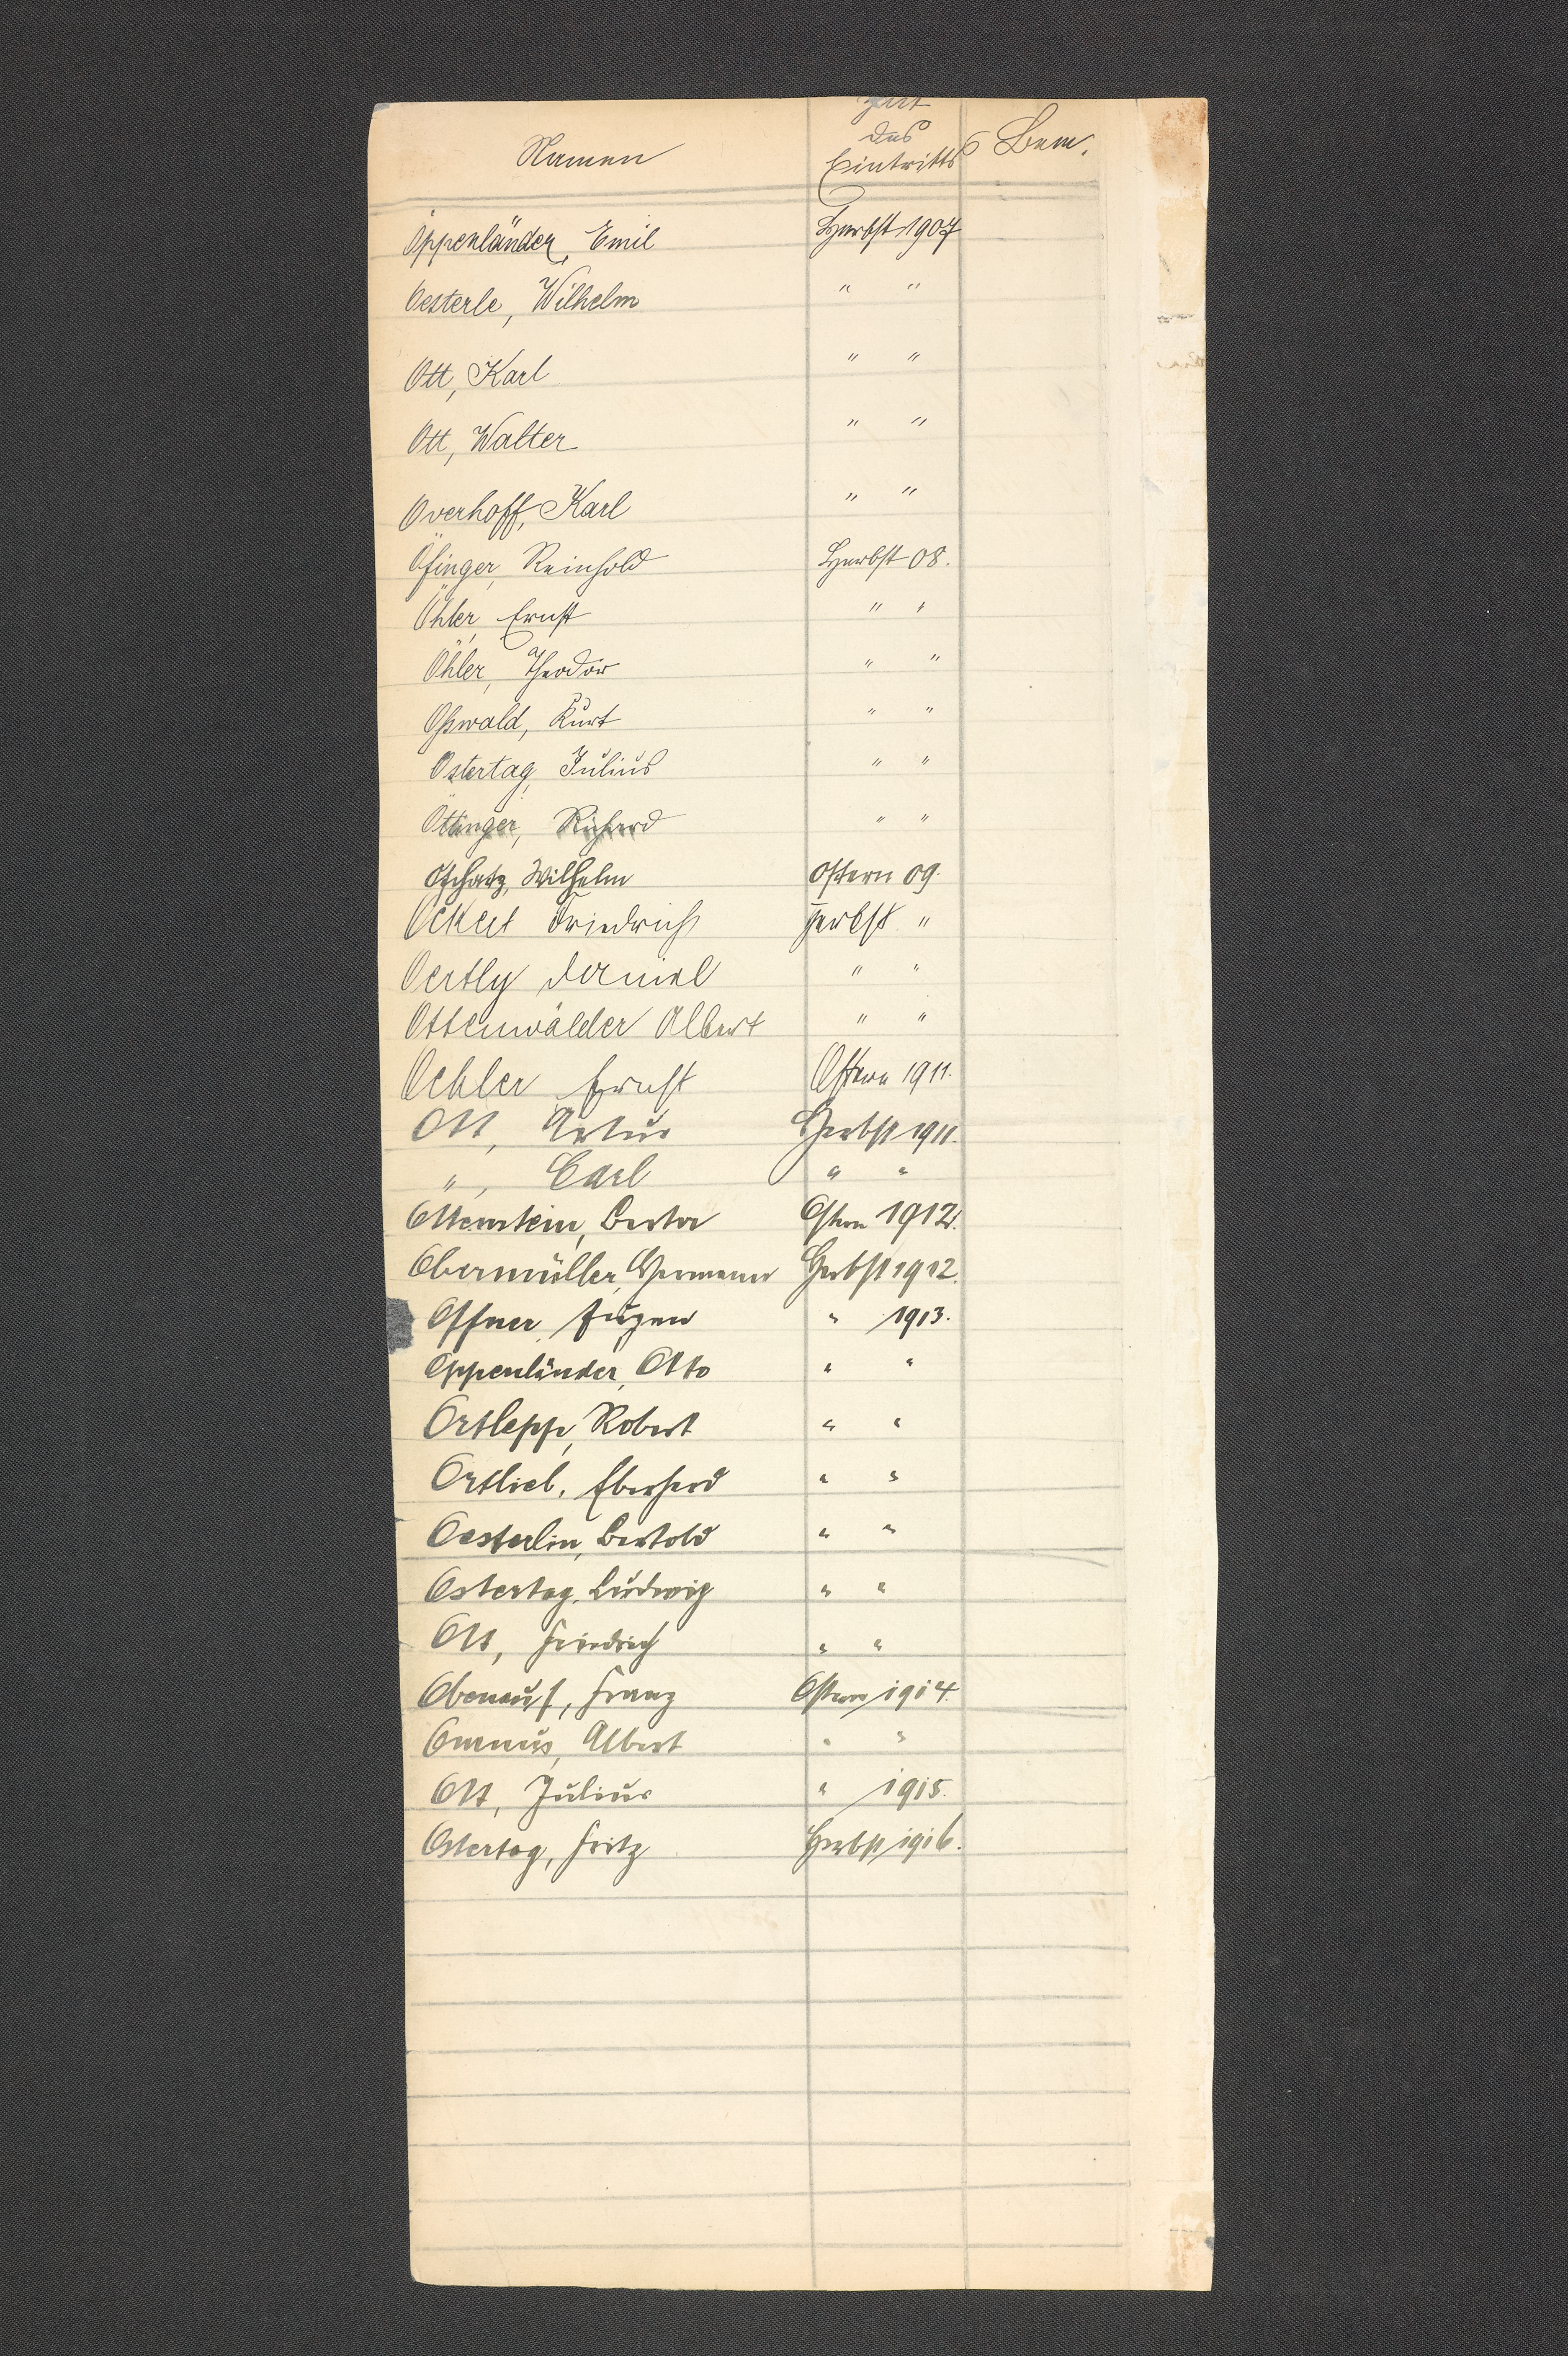 Namen Zeit
des
Eintritts Bem.
Öppenländer, Emil Herbst 1907
Oesterle, Wilhelm " "
Ott, Karl " "
Ott, Walter " "
Overhoff, Karl " "
Öfinger, Reinhold Herbst 08.
Öhler, Ernst " "
Öhler, Theodor " "
Oßwald, Kurt " "
Ostertag, Julius " "
Öttinger, Richard " "
Oschatz, Wilhelm Ostern 09.
Ockert Friedrich Herbst "
Oertly Daniel " "
Ottenwälder Albert " "
Oehler Ernst Ostern 1911.
Ott, Artur Herbst 1911.
", Carl " "
Ottenstein, Berta Ostern 1912.
Obermüller, Hermann Herbst 1912.
Offner, Eugen " 1913.
Oppenländer, Otto " "
Ortlepp, Robert " "
Ortlieb, Eberhard " "
Oesterlin, Bertold " "
Ostertag, Ludwig " "
Ott, Friedrich " "
Obenauf, Franz Ostern 1914.
Albert " "
Ott, Julius " 1915.
Ostertag, Fritz Herbst 1916.